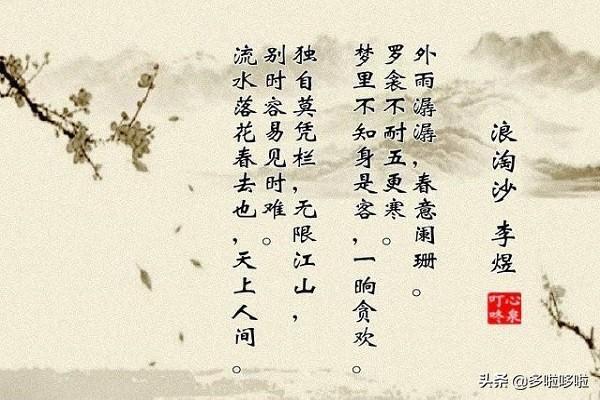 浪淘沙 李煜
心泉
叮咚
外雨潺潺，春意阑珊。
罗衾不耐五更寒。
梦里不知身是客，一晌贪欢。
独自莫凭栏，无限江山，
别时容易见时难。
流水落花春去也，天上人间。
头条 @多啦哆啦